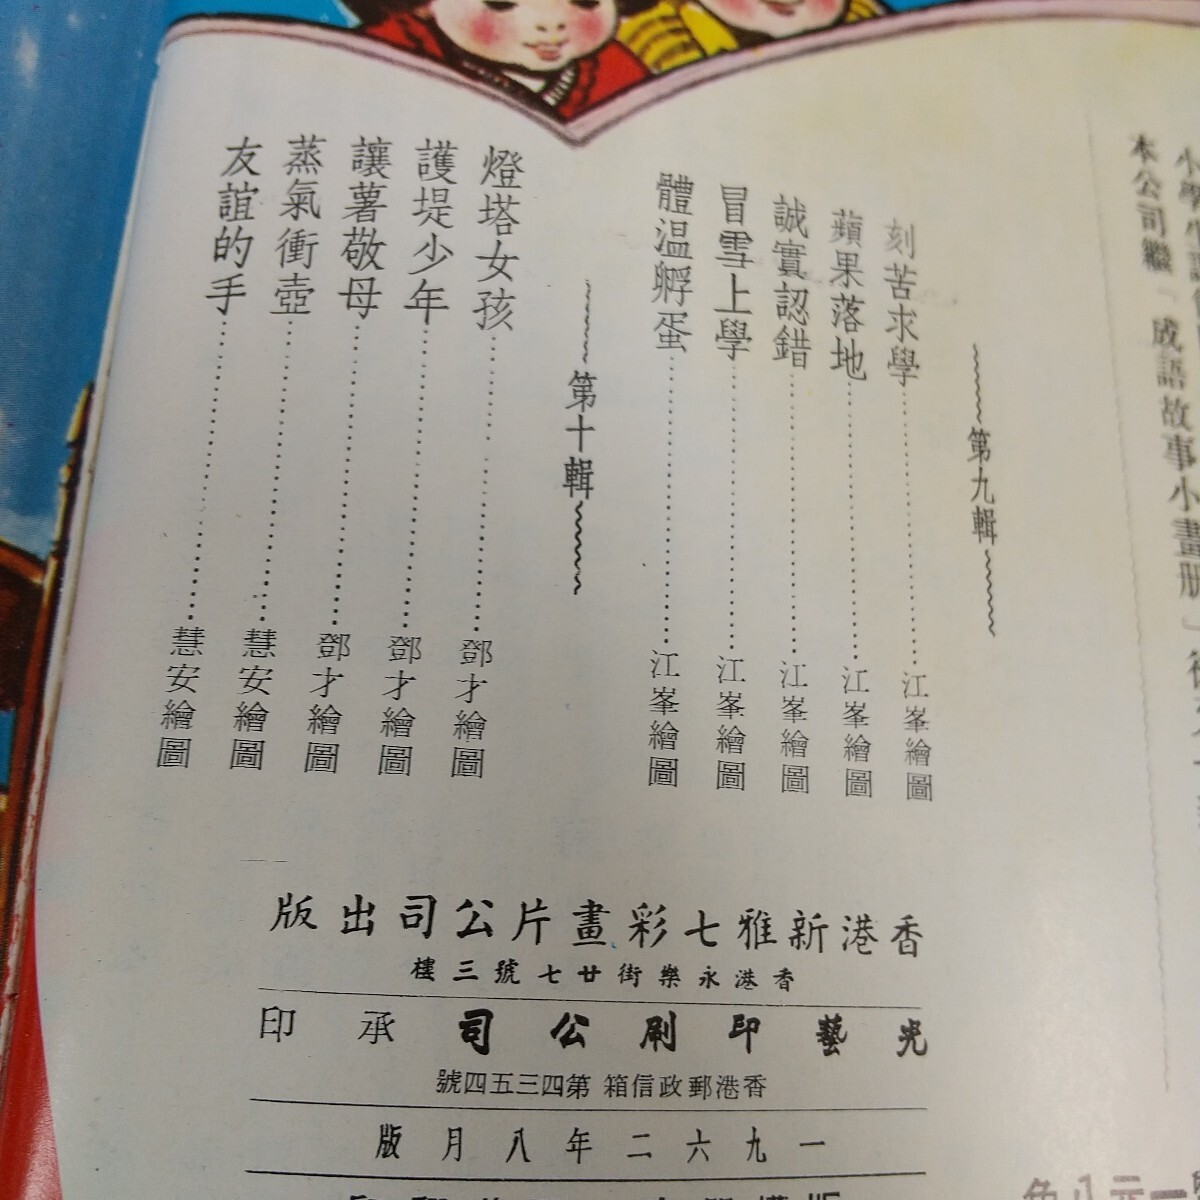 本公司繼「成語故事小畫册」
第九輯
刻苦求學……江峯繪圖
蘋果落地……江峯繪圖
誠實認錯……江峯繪圖
冒雪上學……江峯繪圖
體温孵蛋……江峯繪圖
第十輯
燈塔女孩……鄧才繪圖
護堤少年……鄧才繪圖
讓薯敬母……鄧才繪圖
蒸氣衝壺……慧安繪圖
友誼的手……慧安繪圖
香港新雅七彩畫片公司出版
香港永樂街廿七號三樓
光藝印刷公司承印
香港郵政信箱第四三五四號
一九六二年八月版